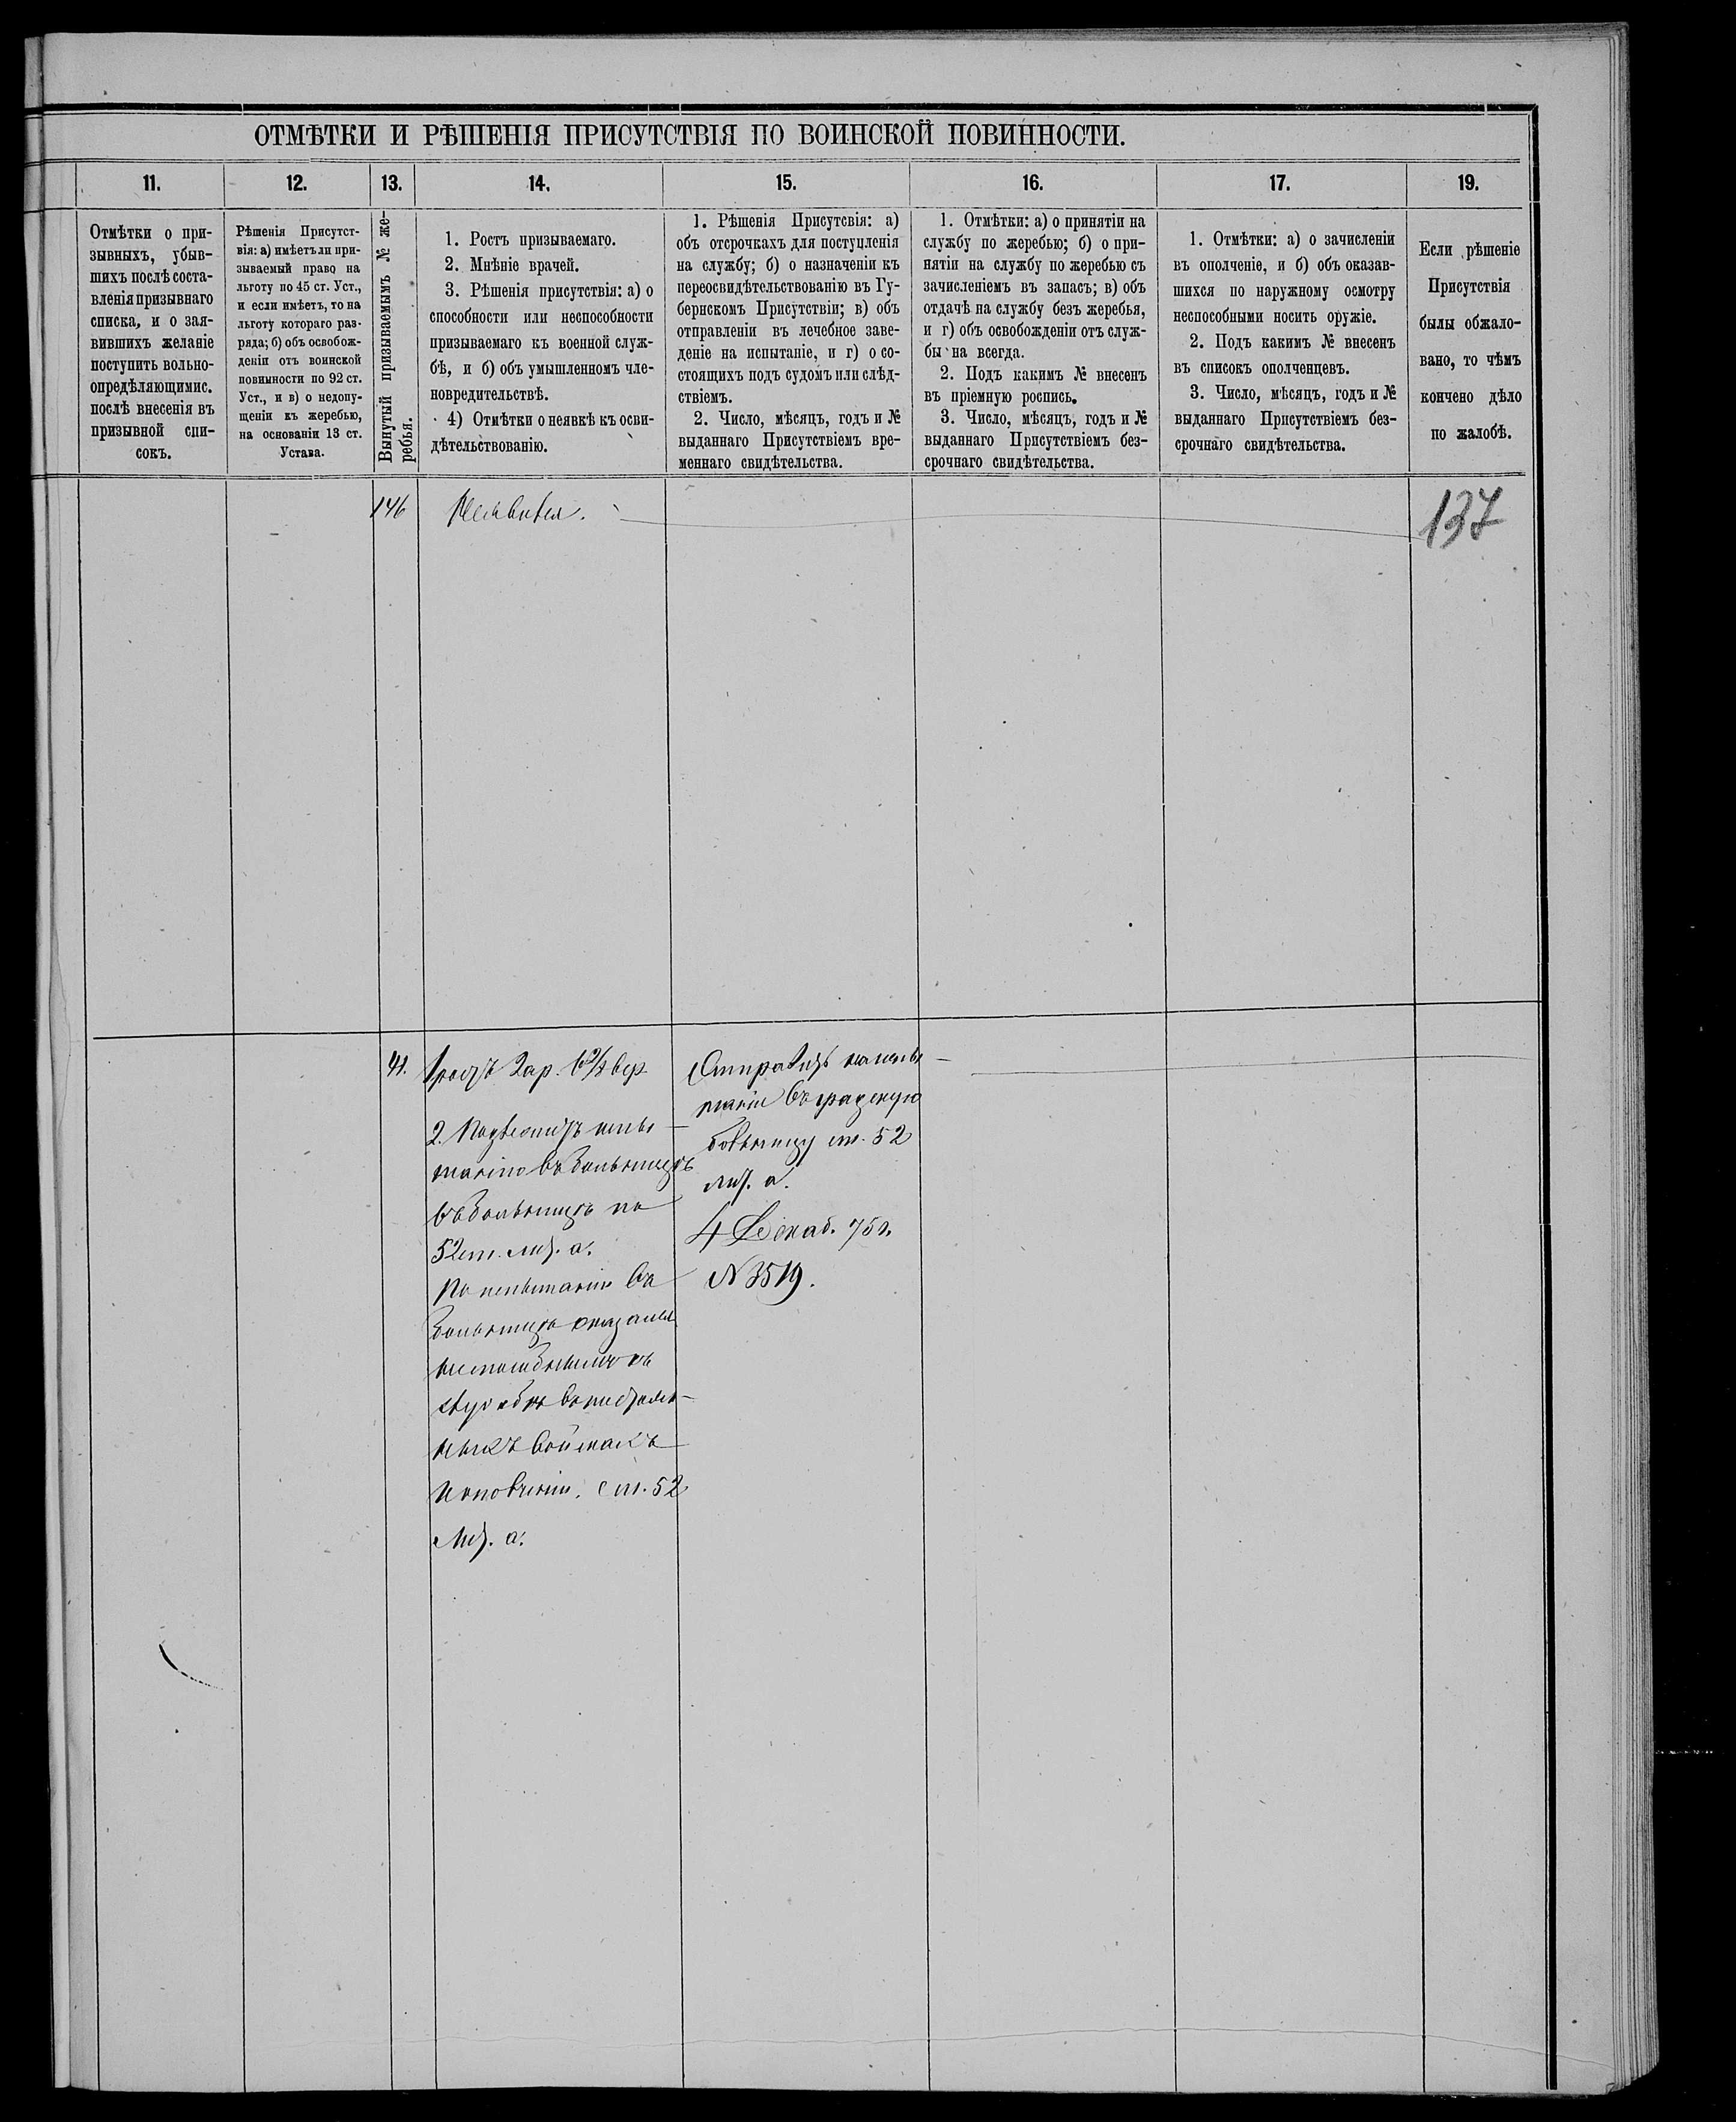 ОТМѢТКИ И РѢШЕНІЯ ПРИСУТСТВІЯ ПО ВОИНСКОЙ ПОВИННОСТИ.
11.
12.
13.
14.
15.
16.
17.
19.
Отмѣтки о при-
зывныхъ, убыв-
шихъ послѣ соста-
вленія призывнаго
списка, и о зая-
вившихъ желаніе
поступить вольно-
опредѣляющимис.
послѣ внесенія въ
призывной спи-
сокъ.
Рѣшенія Присутст-
вія: а) имѣетъ ли при-
зываемый право на
льготу по 45 ст. Уст.,
и если имѣетъ, то на
льготу котораго раз-
ряда; б) объ освобож-
деніи отъ воинской
повинности по 92 ст.
Уст., и в) о недопу-
щеніи къ жеребью,
на основаніи 13 ст.
Устава.
Вынутый призываемымъ № же-
ребья.
1. Ростъ призываемаго.
2. Мнѣніе врачей.
3. Рѣшенія присутствія: а) о
способности или неспособности
призываемаго къ военной служ-
бѣ, и б) объ умышленномъ чле-
новредительствѣ.
4) Отмѣтки о неявкѣ къ осви-
дѣтельствованію.
1. Рѣшенія Присутсвія: а)
объ отсрочкахъ для поступленія
на службу; б) о назначеніи къ
переосвидѣтельствованію въ Гу-
бернскомъ Присутствіи; в) объ
отправленіи въ лечебное заве-
деніе на испытаніе, и г) о со-
стоящихъ подъ судомъ или слѣд-
ствіемъ.
2. Число, мѣсяцъ, годъ и №
выданнаго Присутствіемъ вре-
меннаго свидѣтельства.
1. Отмѣтки: а) о принятіи на
службу по жеребью; б) о при-
нятіи на службу по жеребью съ
зачисленіемъ въ запасъ; в) объ
отдачѣ на службу безъ жеребья,
и г) объ освобожденіи отъ служ-
бы на всегда.
2. Подъ какимъ № внесенъ
въ пріемную роспись.
3. Число, мѣсяцъ, годъ и №
выданнаго Присутствіемъ без-
срочнаго свидѣтельства.
1. Отмѣтки: а) о зачисленіи
въ ополченіе, и б) объ оказав-
шихся по наружному осмотру
неспособными носить оружіе.
2. Подъ какимъ № внесенъ
въ списокъ ополченцевъ.
3. Число, мѣсяцъ, годъ и №
выданнаго Присутствіемъ без-
срочнаго свидѣтельства.
Если рѣшеніе
Присутствія
былы обжало-
вано, то чѣмъ
кончено дѣло
по жалобѣ.
146
Неявился.
137
41.
1 ростъ 2 ар. 6 1/2 вер.
2. Подлежитъ испы-
танію въ больницѣ
въ больницѣ по
52 ст. лит. а.
По испытаніи въ
больницѣ оказался
неспособнымъ къ
службѣ въ постоян-
ныхъ войскахъ
и ополченіи. ст. 52
лит. а.
Отправитъ на испы-
таніе въ градскую
больницу ст. 52
лит. а.
4 Декаб. 75 г.
N 3519.